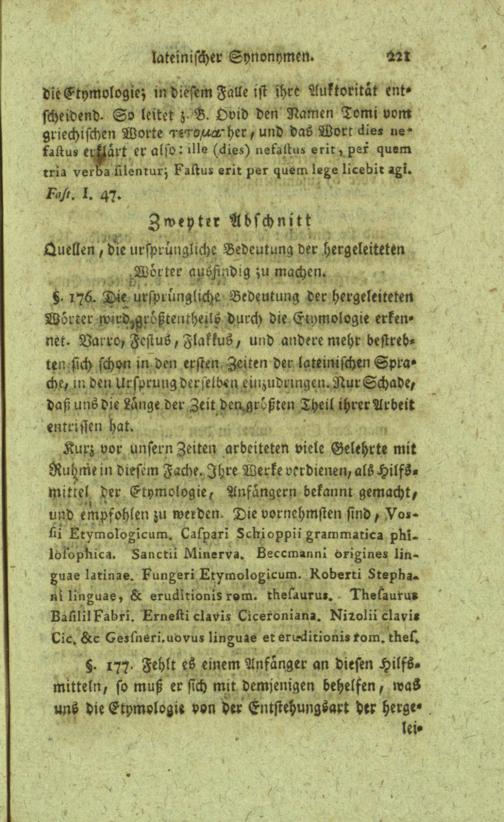 lateinischer Synonymen. 221
die Etymologie; in diesem Falle ist ihre Auktorität ent-
scheidend. So leitet z. B. Ovid den Namen Tomi vom
griechischen Worte τετομα her, und das Wort dies ne-
fastus erklärt er also: ille (dies) nefastus erit, per quem
tria verba silentur; Fastus erit per quem lege licebit agi.
Fast. I. 47.
Zweyter Abschnitt
Quellen, die ursprüngliche Bedeutung der hergeleiteten
Wörter ausfindig zu machen.
§. 176. Die ursprüngliche Bedeutung der hergeleiteten
Wörter wird größtentheils durch die Etymologie erken-
net. Varro, Festus, Flakkus, und andere mehr bestreb-
ten sich schon in den ersten Zeiten der lateinischen Spra-
che, in den Ursprung derselben einzudringen. Nur Schade,
daß uns die Länge der Zeit den größten Theil ihrer Arbeit
entrissen hat.
Kurz vor unsern Zeiten arbeiteten viele Gelehrte mit
Ruhme in diesem Fache. Ihre Werke verdienen, als Hilfs-
mittel der Etymologie, Anfängern bekannt gemacht,
und empfohlen zu werden. Die vornehmsten sind, Vos-
sii Etymologicum. Caspari Schioppii grammatica phi-
losophica. Sanctii Minerva. Beccmanni origines lin-
guae latinae. Fungeri Etymologicum. Roberti Stepha-
ni linguae, & eruditionis rom. thesaurus. Thesaurus
Basilil Fabri. Ernesti clavis Ciceroniana. Nizolii clavis
Cic. &c Gessneri. uovus linguae et eruditionis rom. thes.
§. 177. Fehlt es einem Anfänger an diesen Hilfs-
mitteln, so muß er sich mit demjenigen behelfen, was
uns die Etymologie von der Entstehungsart der herge-
lei-